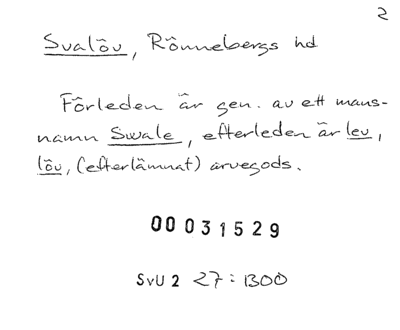 2
Svalöv, Rönnebergs hd
Förleden är gen. av ett mans-
namn Swale, efterleden är lev,
löv, (efterlämnat) arvegods.
00031529
SvU 2 27:1300